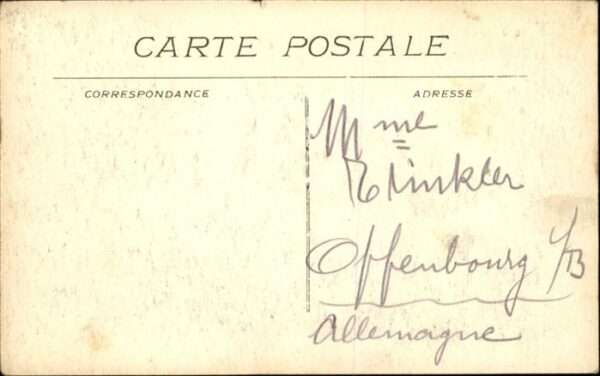 CARTE POSTALE
CORRESPONDANCE
ADRESSE
Mme
Offenbourg /B
Allemagne